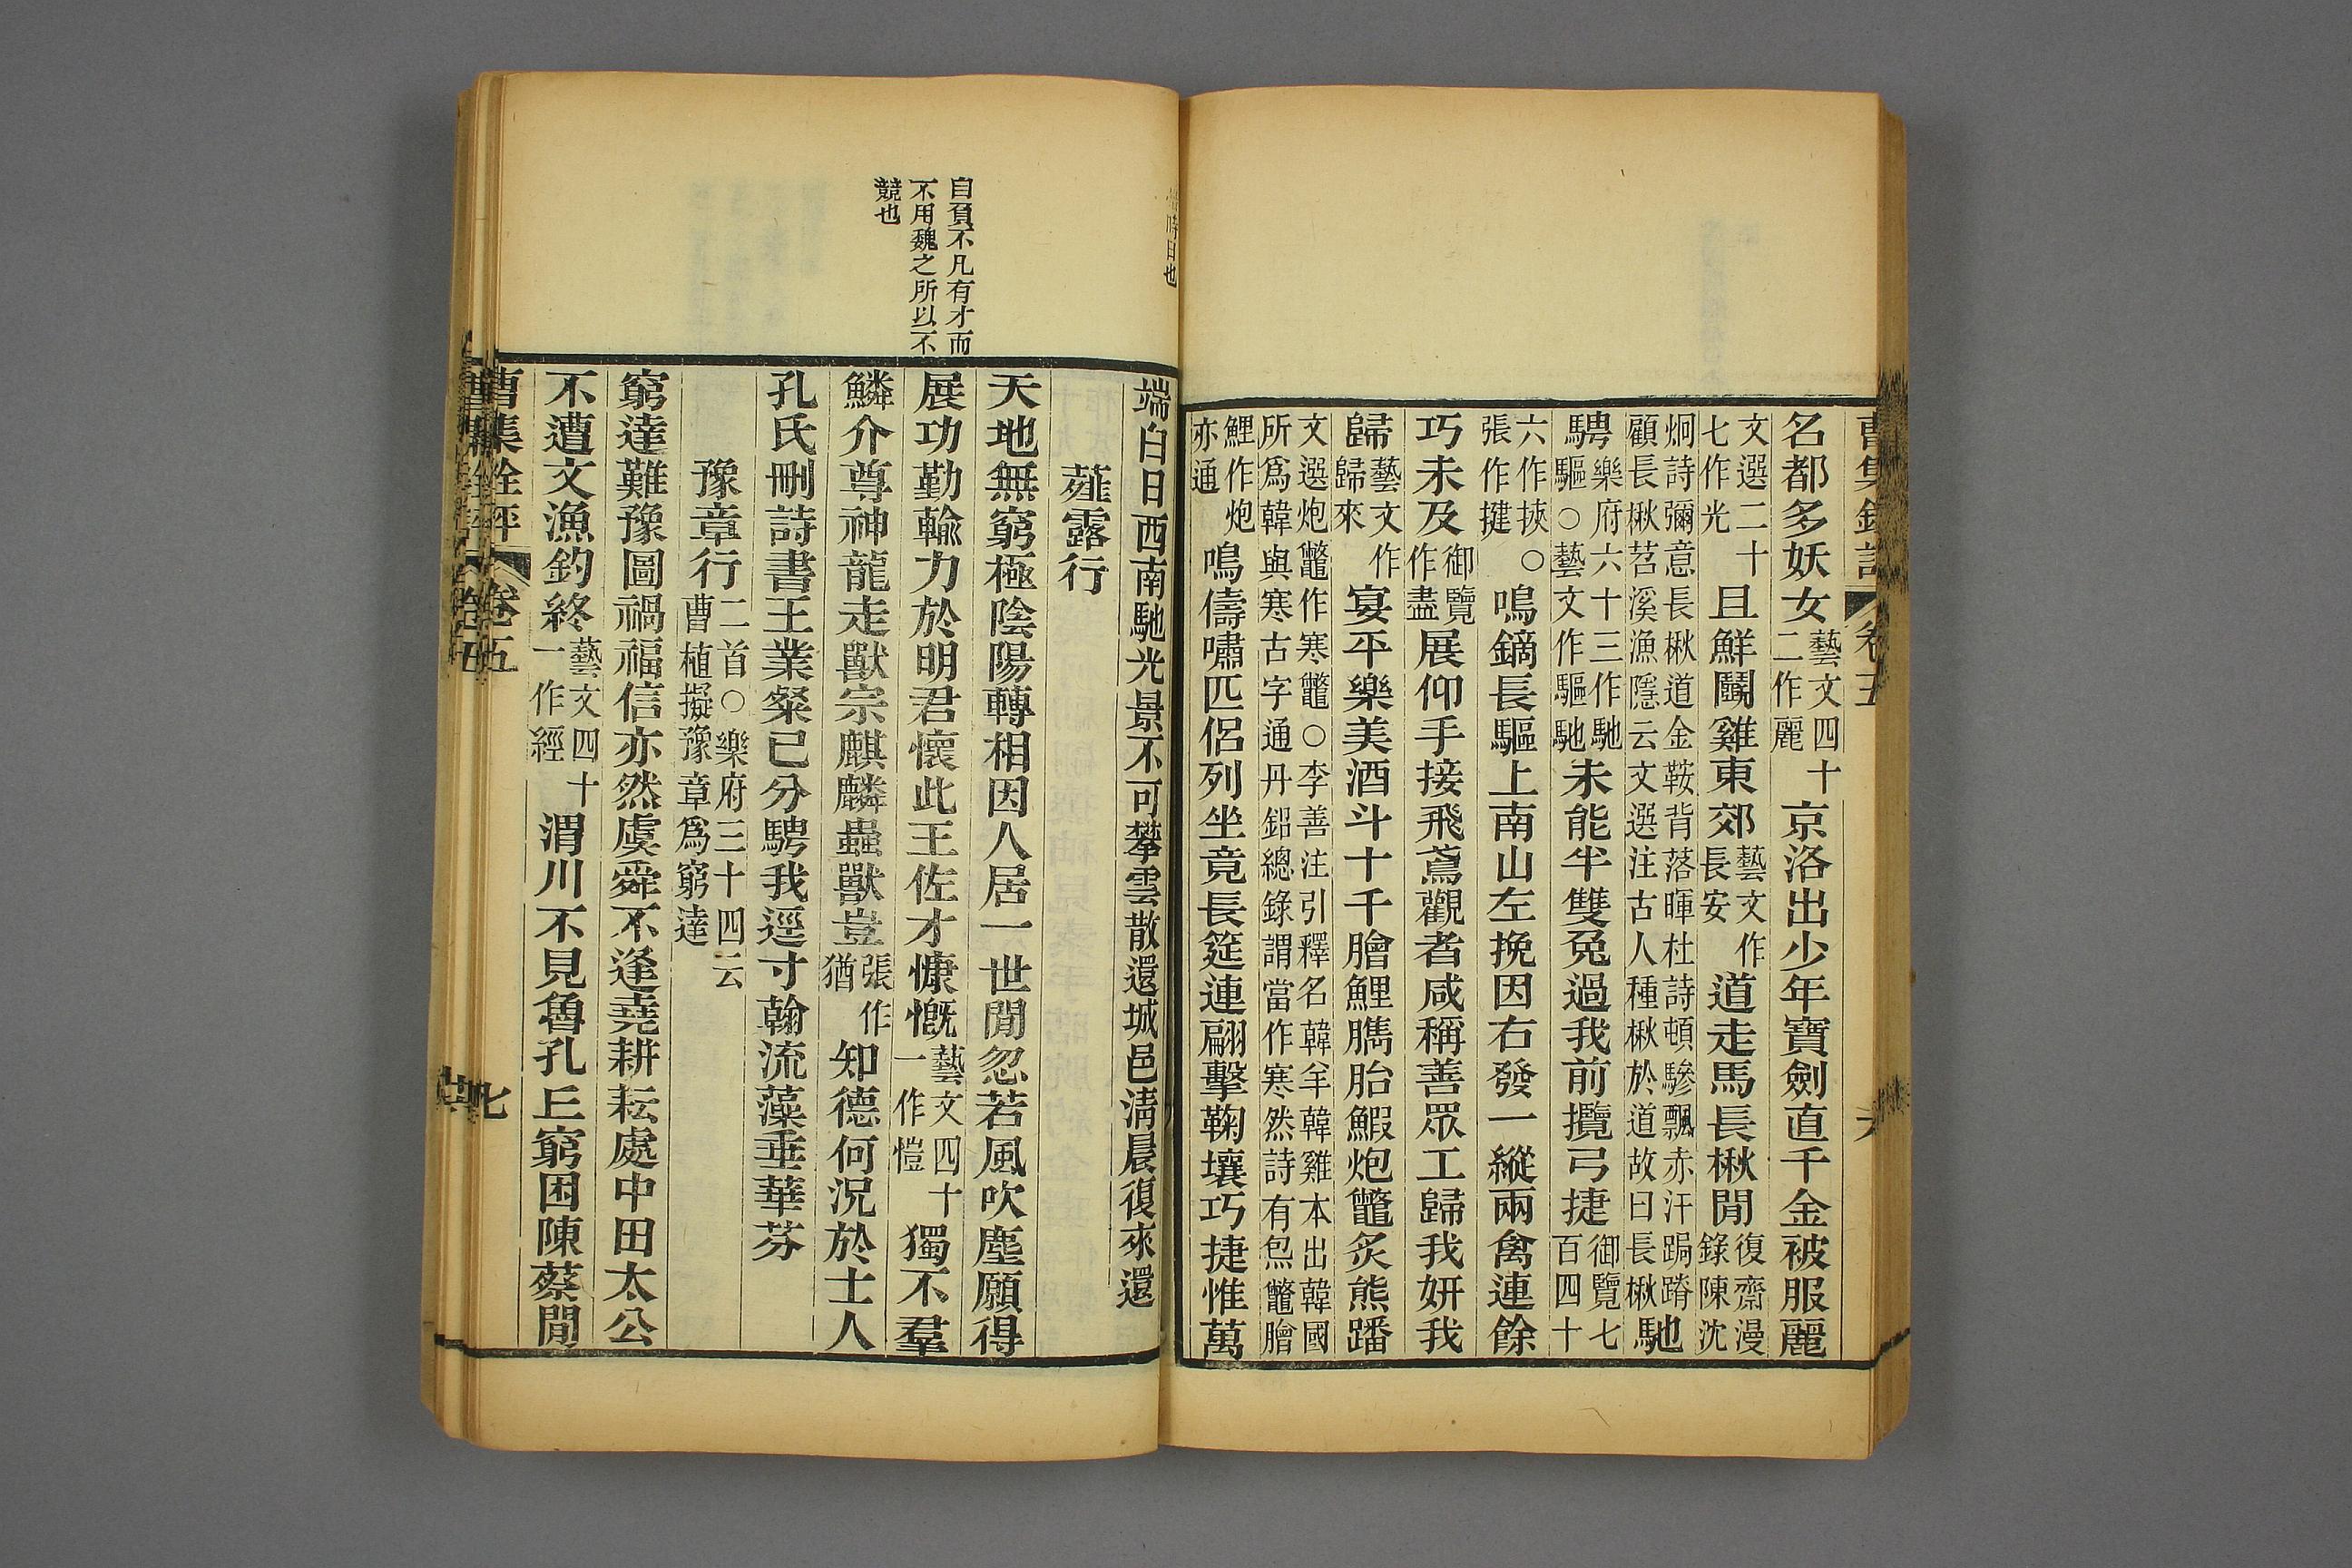 曹集銓評 卷五
名都多妖女藝文四十二作麗京洛出少年寶劍直千金被服麗
文選二十七作光且鮮鬭雞東郊藝文作長安道走馬長楸閒復齋漫錄陳沈
炯詩彌意長楸道金鞍背落暉杜詩頓驂飄赤汗跼蹐顧長楸苕溪漁隱云文選注古人種楸於道故曰長楸馳
騁樂府六十三作馳驅○藝文作驅馳未能半雙兔過我前攬弓捷御覽七百四十
六作挾○張作揵鳴鏑長驅上南山左挽因右發一縱兩禽連餘
巧未及御覽作盡展仰手接飛鳶觀者咸稱善眾工歸我妍我
歸藝文作歸來宴平樂美酒斗十千膾鯉臇胎鰕炮鼈炙熊蹯
文選炮鼈作寒鼈○李善注引釋名韓羊韓雞本出韓國所爲韓與寒古字通丹鉛總錄謂當作寒然詩有炰鼈膾
鯉作炮亦通鳴儔嘯匹侶列坐竟長筵連翩擊鞠壤巧捷惟萬
時日也
端白日西南馳光景不可攀雲散還城邑淸晨復來還
薤露行
天地無窮極陰陽轉相因人居一世閒忽若風吹塵願得
自負不凡有才而
不用魏之所以不
競也
展功勤輸力於明君懷此王佐才慷慨藝文四十一作愷獨不羣
鱗介尊神龍走獸宗麒麟蟲獸豈張作猶知德何況於士人
孔氏刪詩書王業粲已分騁我逕寸翰流藻垂華芬
豫章行二首○樂府三十四云曹植擬豫章爲窮達
窮達難豫圖禍福信亦然虞舜不逢堯耕耘處中田太公
不遭文漁釣終藝文四十一作經渭川不見魯孔丘窮困陳蔡閒
曹集銓評 卷五 七